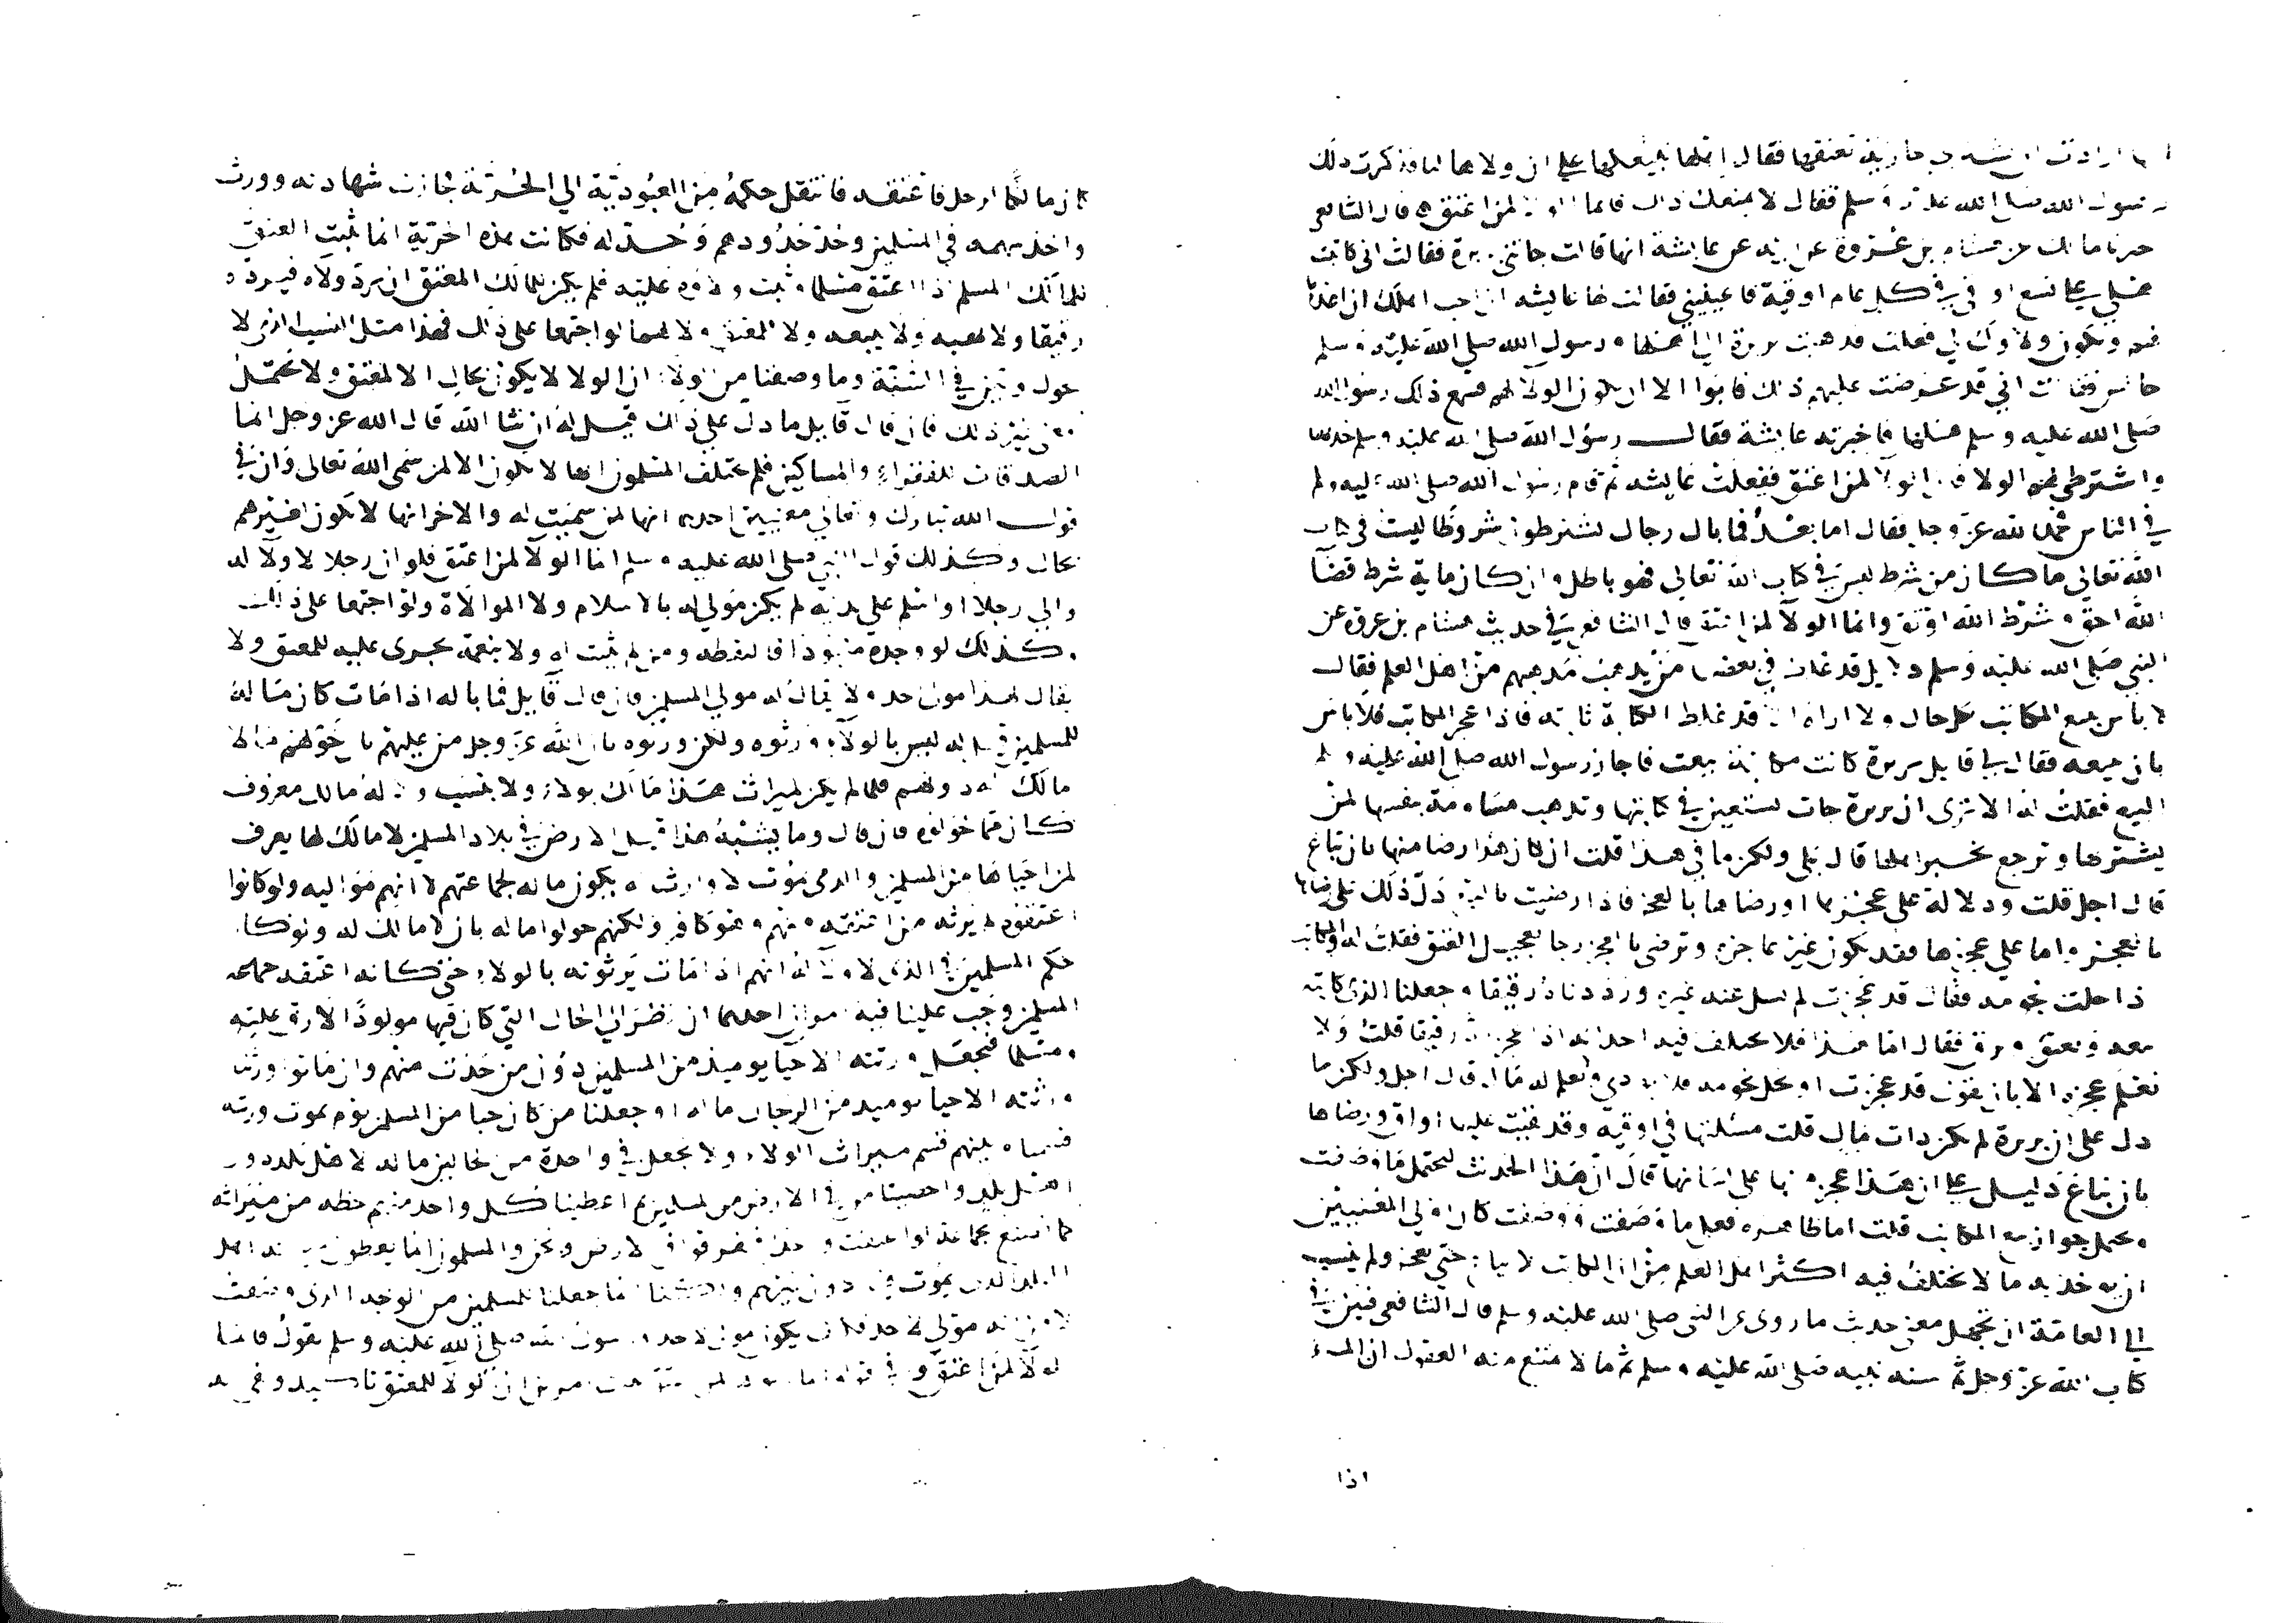 ارادت ان تشتري جارية تعتقها فقال اهلها نبيعكها على ان ولاها لنا فذكرت ذلك
لرسول الله صلى الله عليه وسلم فقال لا يمنعك ذلك فانما الولا لمن اعتق قال الشافعي
اخبرنا مالك عن هشام بن عروة عن ابيه عن عايشة انها قالت جاتني بريرة فقالت اني كاتبت
اهلي على تسع اواق في كل عام اوقية فاعينيني فقالت لها عايشه ان احب اهلك ان اعدها
لهم ويكون ولاوك لي فعلت فذهبت بريرة الى اهلها ورسول الله صلى الله عليه وسلم
جالس فقالت اني قد عرضت عليهم ذلك فابوا الا ان يكون الولا لهم فسمع ذلك رسول الله
صلى الله عليه وسلم فسالها فاخبرته عايشة فقال رسول الله صلى الله عليه وسلم خذيها
واشترطي لهم الولا فان الولا لمن اعتق ففعلت عايشه ثم قام رسول الله صلى الله عليه وسلم
في الناس فحمد الله عز وجل فقال اما بعد فما بال رجال يشترطون شروطا ليست في كتاب
الله تعالى ما كان من شرط ليس في كتاب الله تعالى فهو باطل وان كان ماية شرط قضا
الله احق وشرط الله اوثق وانما الولا لمن اعتق قال الشافعي في حديث هشام بن عروة عن
النبي صلى الله عليه وسلم دلايل قد غلط في بعضها من يذهب مذهبهم من اهل العلم فقال
لا باس ببيع المكاتب بكل حال ولا اراه الا قد غلط الكتابة ثابتة فاذا عجز المكاتب فلا باس
بان يبيعه فقال لي قايل بريرة كانت مكاتبة بيعت فاجاز رسول الله صلى الله عليه وسلم
البيع فقلت له الا ترى ان بريرة جات تستعين في كتابتها وتذهب مساومة بنفسها لمن
يشتريها وترجع بخبر اهلها قال بلى ولكن ما في هذا قلت ان كان هذا رضا منها بان تباع
قال اجل قلت ودلالة على عجزها او رضاها بالعجز فاذا رضيت بالبيع دل ذلك على رضاها
بالعجز واما على عجزها فقد يكون غير عاجزه وترضى بالعجز رجا تعجيل العتق فقلت له والمكاتب
اذا حلت نجومه فقال قد عجزت لم يسل عنه غيره ورددناه رقيقا وجعلنا الذي كاتبه
يبيعه ويعتق ويرق فقال اما هذا فلا يختلف فيه احد انه اذا عجز رد رقيقا قلت ولا
نعلم عجزه الا بان يقول قد عجزت او تحل نجومه فلا يودي ولا نعلم له مالا قال اجل ولكن ما
دل على ان بريرة لم تكن ذات مال قلت مسئلتها في اوقية وقد بقيت عليها اواق ورضاها
بان تباع دليل على ان هذا عجز منها على لسانها قال ان هذا الحديث ليحتمل ما وصفت
ويحتمل جواز بيع المكاتب قلت اما ظاهره فعلى ما وصفت ووصفت كان اولى المعنيين
ان يوخذ به ما لا يختلف فيه اكثر اهل العلم من ان المكاتب لا يباع حتى يعجز ولم ينسب
الى العامة ان تجهل معنى حديث ما روي عن النبي صلى الله عليه وسلم قال الشافعي فبين في
كتاب الله عز وجل ثم سنه نبيه صلى الله عليه وسلم ثم ما لا يمتنع منه العقول ان المرء
اذا
كان مالكا لرجل فاعتقه فانتقل حكمه من العبودية الى الحرية فجازت شهادته وورث
واخذ سهمه في المسلمين وحد حدودهم وحد له فكانت هذه الحرية انما ثبت العتق
للمالك المسلم اذا اعتق مسلما فثبت ولاوه عليه فلم يكن للمالك المعتق ان يرد ولاه فيرده
رقيقا ولا يهبه ولا يبيعه ولا للمعتق ولا لهما لو اجتمعا على ذلك فهذا مثل النسب الذي لا
يحول وبين في السنة وما وصفنا من الولا ان الولا لا يكون بحال الا لمعتق ولا يحتمل
معنى غير ذلك فان قال قايل ما دل على ذلك قيل له ان شا الله قال الله عز وجل انما
الصدقات للفقراء والمساكين فلم يختلف المسلمون انها لا تكون الا لمن سمى الله تعالى وان في
قول الله تبارك وتعالى معنيين احدهما انها لمن سميت له والاخر انها لا تكون لغيرهم
بحال وكذلك قول النبي صلى الله عليه وسلم انما الولا لمن اعتق فلو ان رجلا لا ولا له
والى رجلا او اسلم على يديه لم يكن مولى له بالاسلام ولا الموالاة ولو اجتمعا على ذلك
وكذلك لو وجده منبوذا فالتقطه ومن لم يثبت له ولا بنعمة تجرى عليه للمعتق ولا
يقال لهذا مولى احد ولا يقال له مولى المسلمين فان قال قايل فما باله اذا مات كان ماله
للمسلمين قيل له ليس بالولا ورثوه ولكن ورثوه بان الله عز وجل من عليهم بان خولهم ما لا
مالك له دونهم فلما لم يكن لميراث هذا مالك بولاء ولا بنسب ولا له مالك معروف
كان مما خولوه فان قال وما يشبه هذا قيل الارض في بلاد المسلمين لا مالك لها يعرف
لمن احياها من المسلمين والذمي يموت لا وارث له يكون ماله لجماعتهم لا انهم مواليه ولو كانوا
اعتقوه لم يرثه من اعتقه منهم وهو كافر ولكنهم خولوا ماله بان لا مالك له ولو كان
حكم المسلمين في الذي لا ولا له انهم اذا مات يرثونه بالولاء حتى كانه اعتقه جماعه
المسلمين وجب علينا فيه امران احدهما ان ننظر الى الحال التي كان فيها مولودا لا رق عليه
ومسلما فنجعل ورثته الاحيا يوميذ من المسلمين دون من حدث منهم وان ماتوا ورثنا
ورثته الاحيا يوميذ من الرجال ماله او جعلنا من كان حيا من المسلمين يوم يموت ورثته
قسمناه بينهم قسم ميراث الولاء ولا نجعل في واحدة من الحالين ماله لاهل بلد دون
اهل بلد واحصينا من في الارض من المسلمين ثم اعطينا كل واحد منهم حظه من ميراثه
كما نصنع بجماعة لو اعتقت واحدا فتفرقوا في الارض ونحن والمسلمون انما يعطون ميراثه اهل
البلد الذي يموت فيه دون غيرهم
لا من انه مولى لاحد فكيف يكون مولى لاحد ورسول الله صلى الله عليه وسلم يقول فانما
الولا لمن اعتق وفي قوله انما الولا لمن اعتق